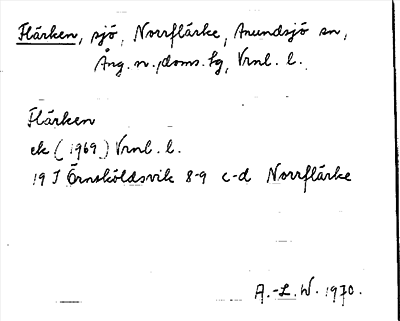 Flärken, sjö, Norrflärke, Anundsjö sn,
Ång. n. doms. fg, Vrnl. l.
Flärken
ek (1969) Vrnl. l.
19 J Örnsköldsvik 8-9 c-d Norrflärke
A.-L. W. 1970.